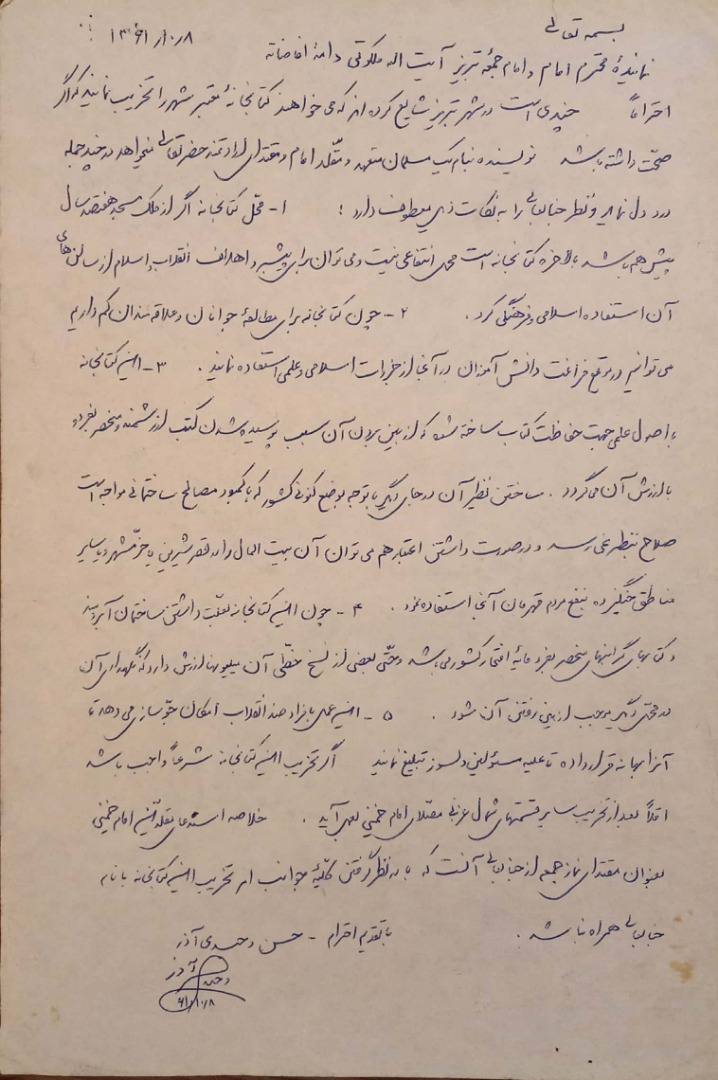 بسمه تعالی
۱۳۶۱/۱۰/۸
نمایندهٔ محترم امام و امام جمعهٔ تبریز آیت اله ملکوتی دامة افاضاته
احتراماً چندی است در شهر تبریز شایع کرده اند که می خواهند کتابخانهٔ معتبر شهر را تخریب نمایند که اگر
صحّت داشته باشد نویسنده بنام یک مسلمان متعهد و مقلّد امام و مقتدای ارادتمند حضرتعالی میخواهد در چند جمله
درد دل نماید و نظر جنابعالی را به نکات زیر معطوف دارد : ۱- محل کتابخانه اگر از ملک مسجد هفتصد سال
پیش هم باشد بالاخره کتابخانه است محل انتفاعی نیست و می توان برای پیشبرد اهداف انقلاب و اسلام از سالن های
آن استفاده اسلامی و فرهنگی کرد . ۲- چون کتابخانه برای مطالعهٔ جوانان و علاقه مندان کم داریم
می توانیم در موقع فراغت دانش آموزان در آنجا از جزوات اسلامی و علمی استفاده نمایند . ۳- این کتابخانه
با اصول علمی جهت حفاظت کتاب ساخته شده که از بین بردن آن سبب پوسیده شدن کتب ارزشمند و منحصر بفرد و
با ارزش آن می گردد . ساختن نظیر آن در جای دیگر با توجه بوضع کنونی کشور که با کمبود مصالح ساختمانی مواجه است
صلاح بنظر نمی رسد و در صورت داشتن اعتبار هم می توان آن بیت المال را در قصر شیرین یا خرّمشهر و یا سایر
مناطق جنگزده بنفع مردم قهرمان آنجا استفاده نمود . ۴- چون این کتابخانه بعلّت داشتن ساختمان آبرومند
و کتابهای گرانبهای منحصر بفرد مایهٔ افتخار کشور می باشد و حتّی بعضی از نسخ خطّی آن میلیونها ارزش دارد که نگهداری آن
در محل دیگر موجب از بین رفتن آن شود . ۵- این عمل بافراد ضد انقلاب امکان جوّسازی می دهد تا
آنرا بهانه قرار داده تا علیه مسئولین دلسوز تبلیغ نمایند اگر تخریب این کتابخانه شرعاً واجب باشد
اقلاً بعد از تخریب سایر قسمتهای شمال غربی مصلّای امام خمینی بعمل آید . خلاصه استدعای مقلّدین امام خمینی
بعنوان مقتدای نماز جمعه از جنابعالی آنست که با در نظر گرفتن کلّیهٔ جوانب امر تخریب این کتابخانه با نام
جنابعالی همراه نباشد . با تقدیم احترام - حسن وحیدی آذر
وحیدی آذر
۶۱/۱۰/۸